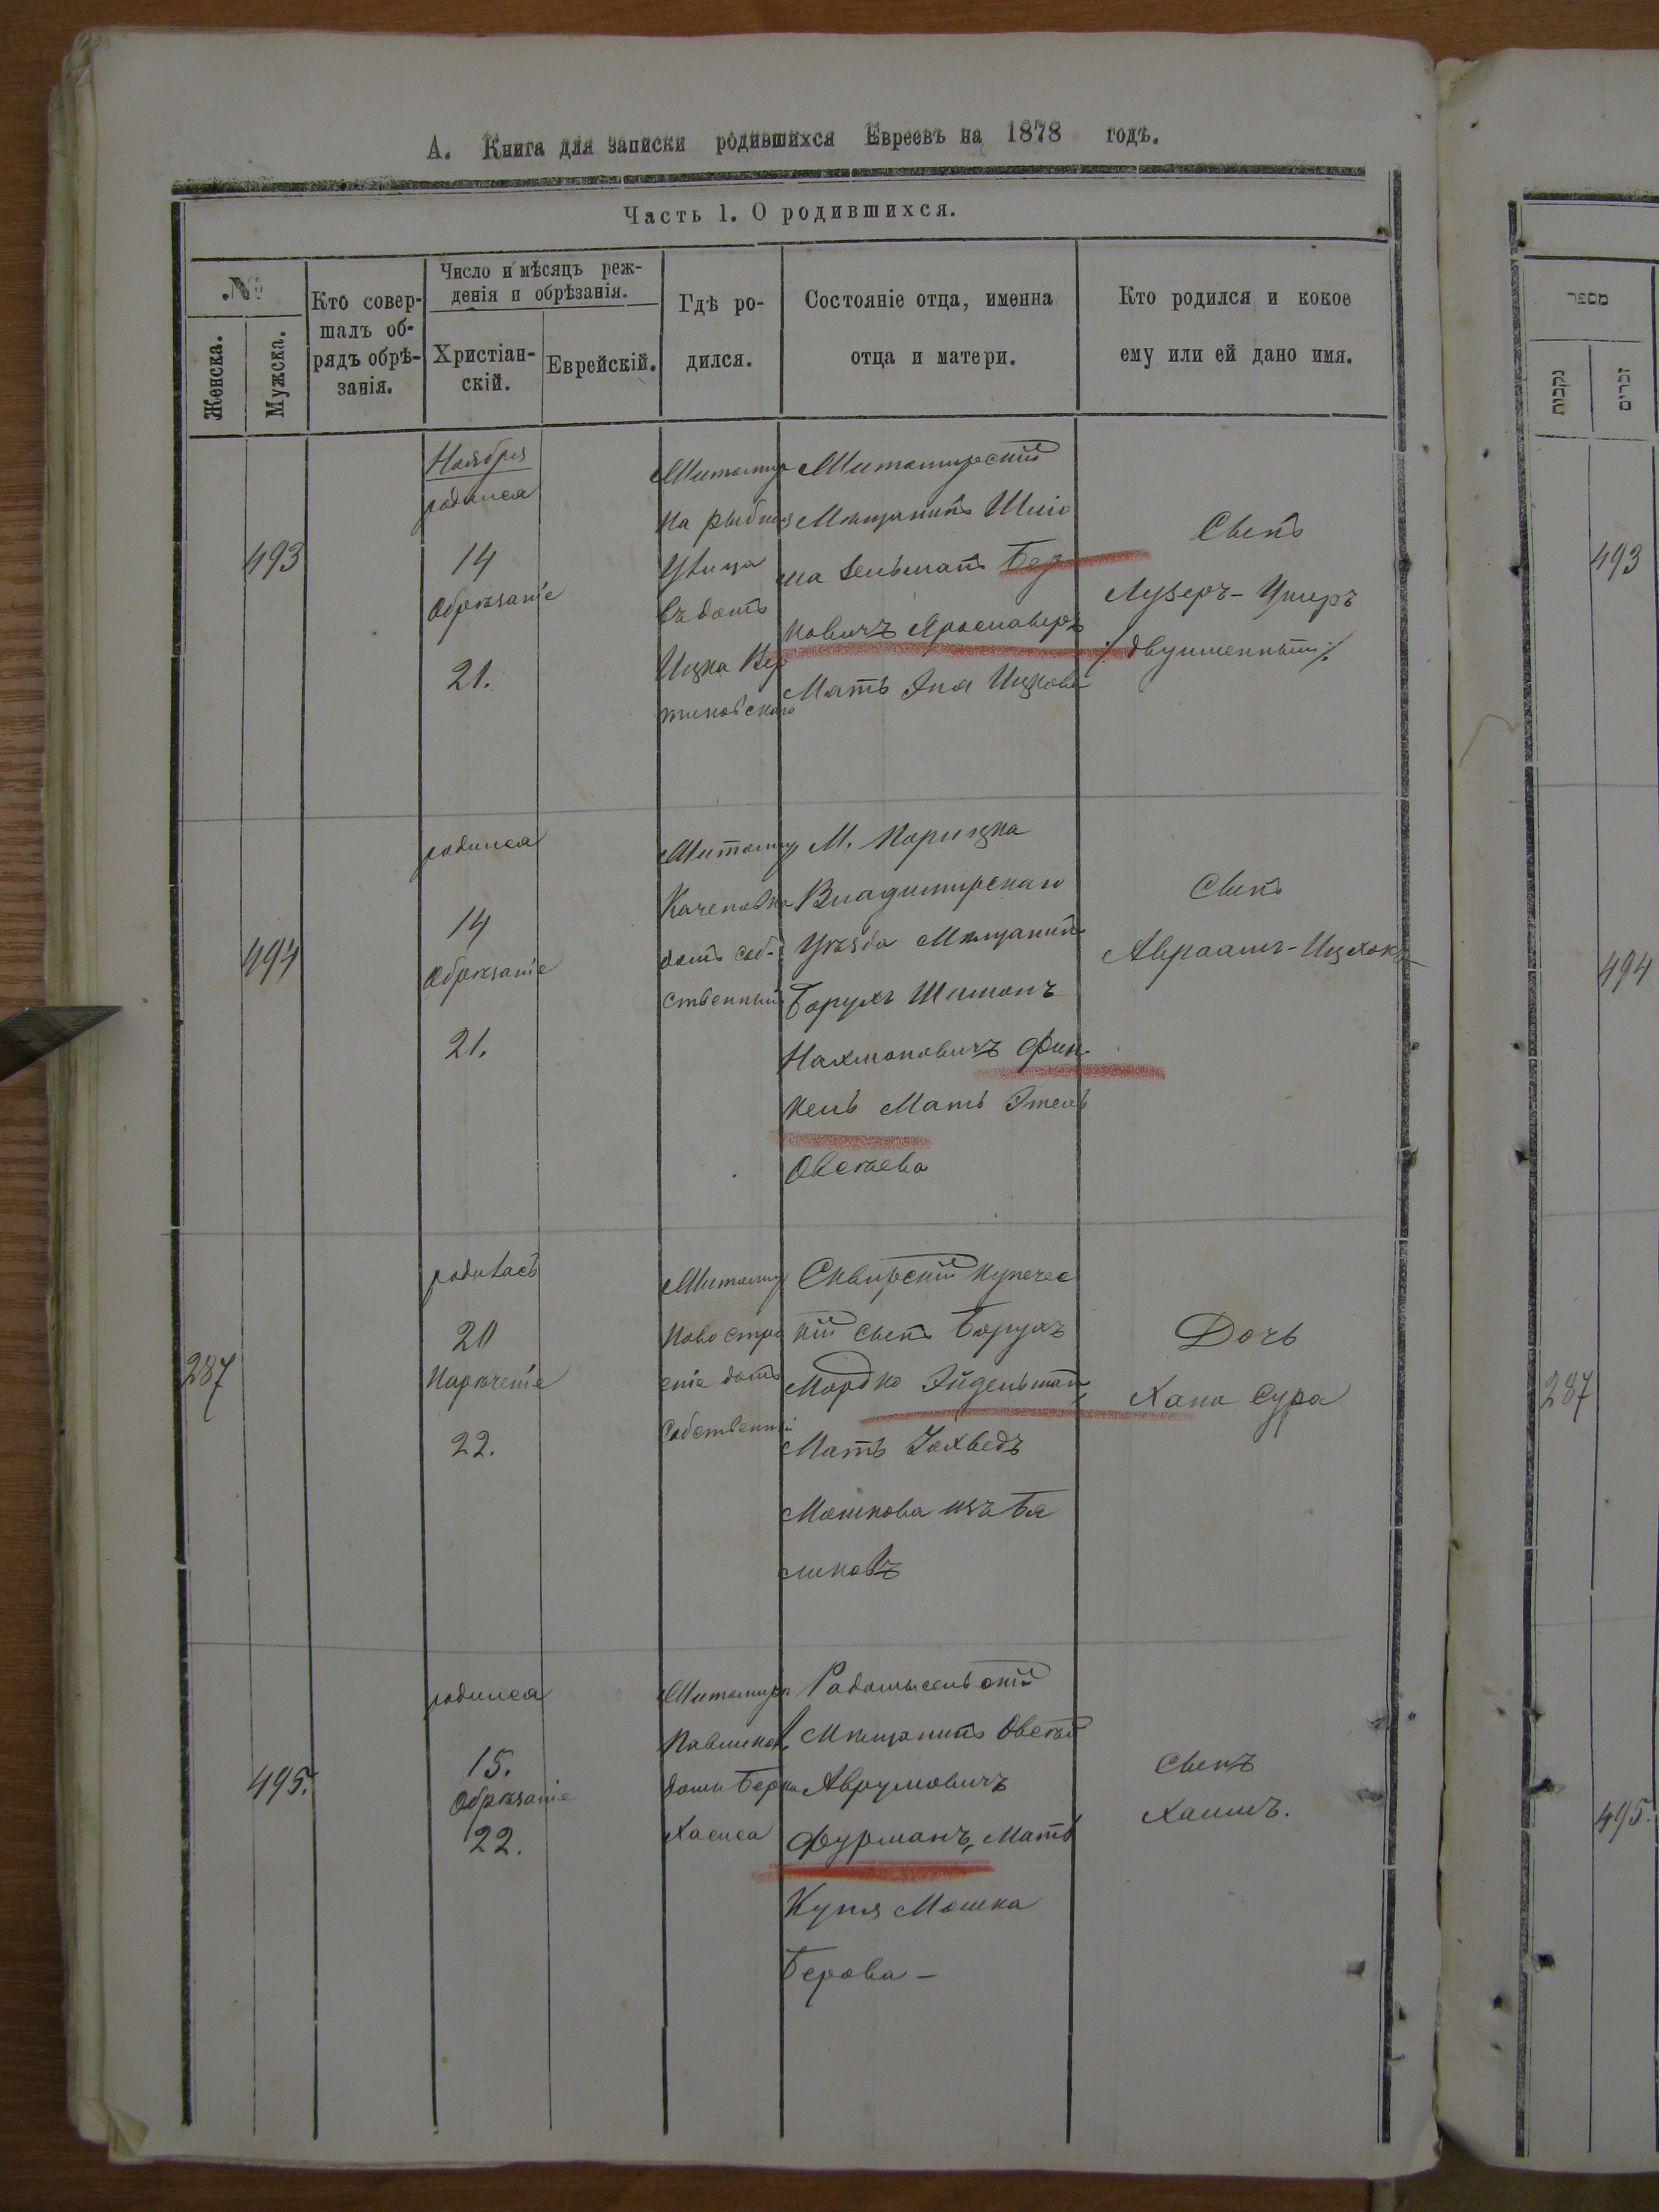 А. Книга для записки родившихся Евреевъ на 1878 годъ.
Часть 1. О родившихся.
№
Женска.
Мужска.
Кто совер-
шалъ об-
рядъ обрѣ-
занія.
Число и мѣсяцъ реж-
денія и обрѣзанія.
Христіан-
скій.
Еврейскій.
Гдѣ ро-
дился.
Состояніе отца, именна
отца и матери.
Кто родился и кокое
ему или ей дано имя.
493
Ноября
родился
14
Обрѣзаніе
21.
Житомир
на рыбной
Улица
въ домѣ
Ицка
Житомирскій
Мещанинъ Шлio
ма Зельманъ Бер
ковичъ
Мать Эня Ицкова
Сынъ
Лузеръ-Ушеръ
/:двуименный:/
494
родился
14
Обрѣзаніе
21.
Житомир
домъ соб-
ственный
М. Корицка
Владимирскаго
Уѣзда Мѣщанинъ
Борухъ Шимонъ
Нахмановичъ Фин
кель Мать Этель
Овсѣева
Сынъ
Авраамъ-Ицхокъ
287
родилась
20
Нарѣченіе
22.
Житомир
Ново стро
еніе домъ
Собственный
Сквирскій купечес
кій сынъ Борухъ
Мордко Эйдельманъ
Мать Іохведъ
Мошкова изъ Бя
ликовъ
Дочь
Хана Сура
495.
родился
15.
Обрѣзаніе
22.
Житомиръ
домъ Берка
Радомысльскій
Мѣщанинъ Овсѣй
Аврумовичъ
Фурманъ, Мать
Купя Мошка
Берова –
Сынъ
Хаимъ.
מספר
נקבות
זכרים
493
494
287
495.